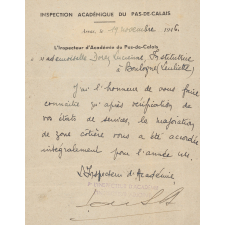 INSPECTION ACADÉMIQUE DU PAS-DE-CALAIS
Arras, le 19 novembre 1946
L'Inspecteur d'Académie du Pas-de-Calais
à Mademoiselle Lucienne, Institutrice
à Boulogne
J'ai l'honneur de vous faire
connaître qu'après vérification de
vos états de services, la majoration
de zone côtière vous a été accordée
intégralement pour l'année
L'Inspecteur d'Académie